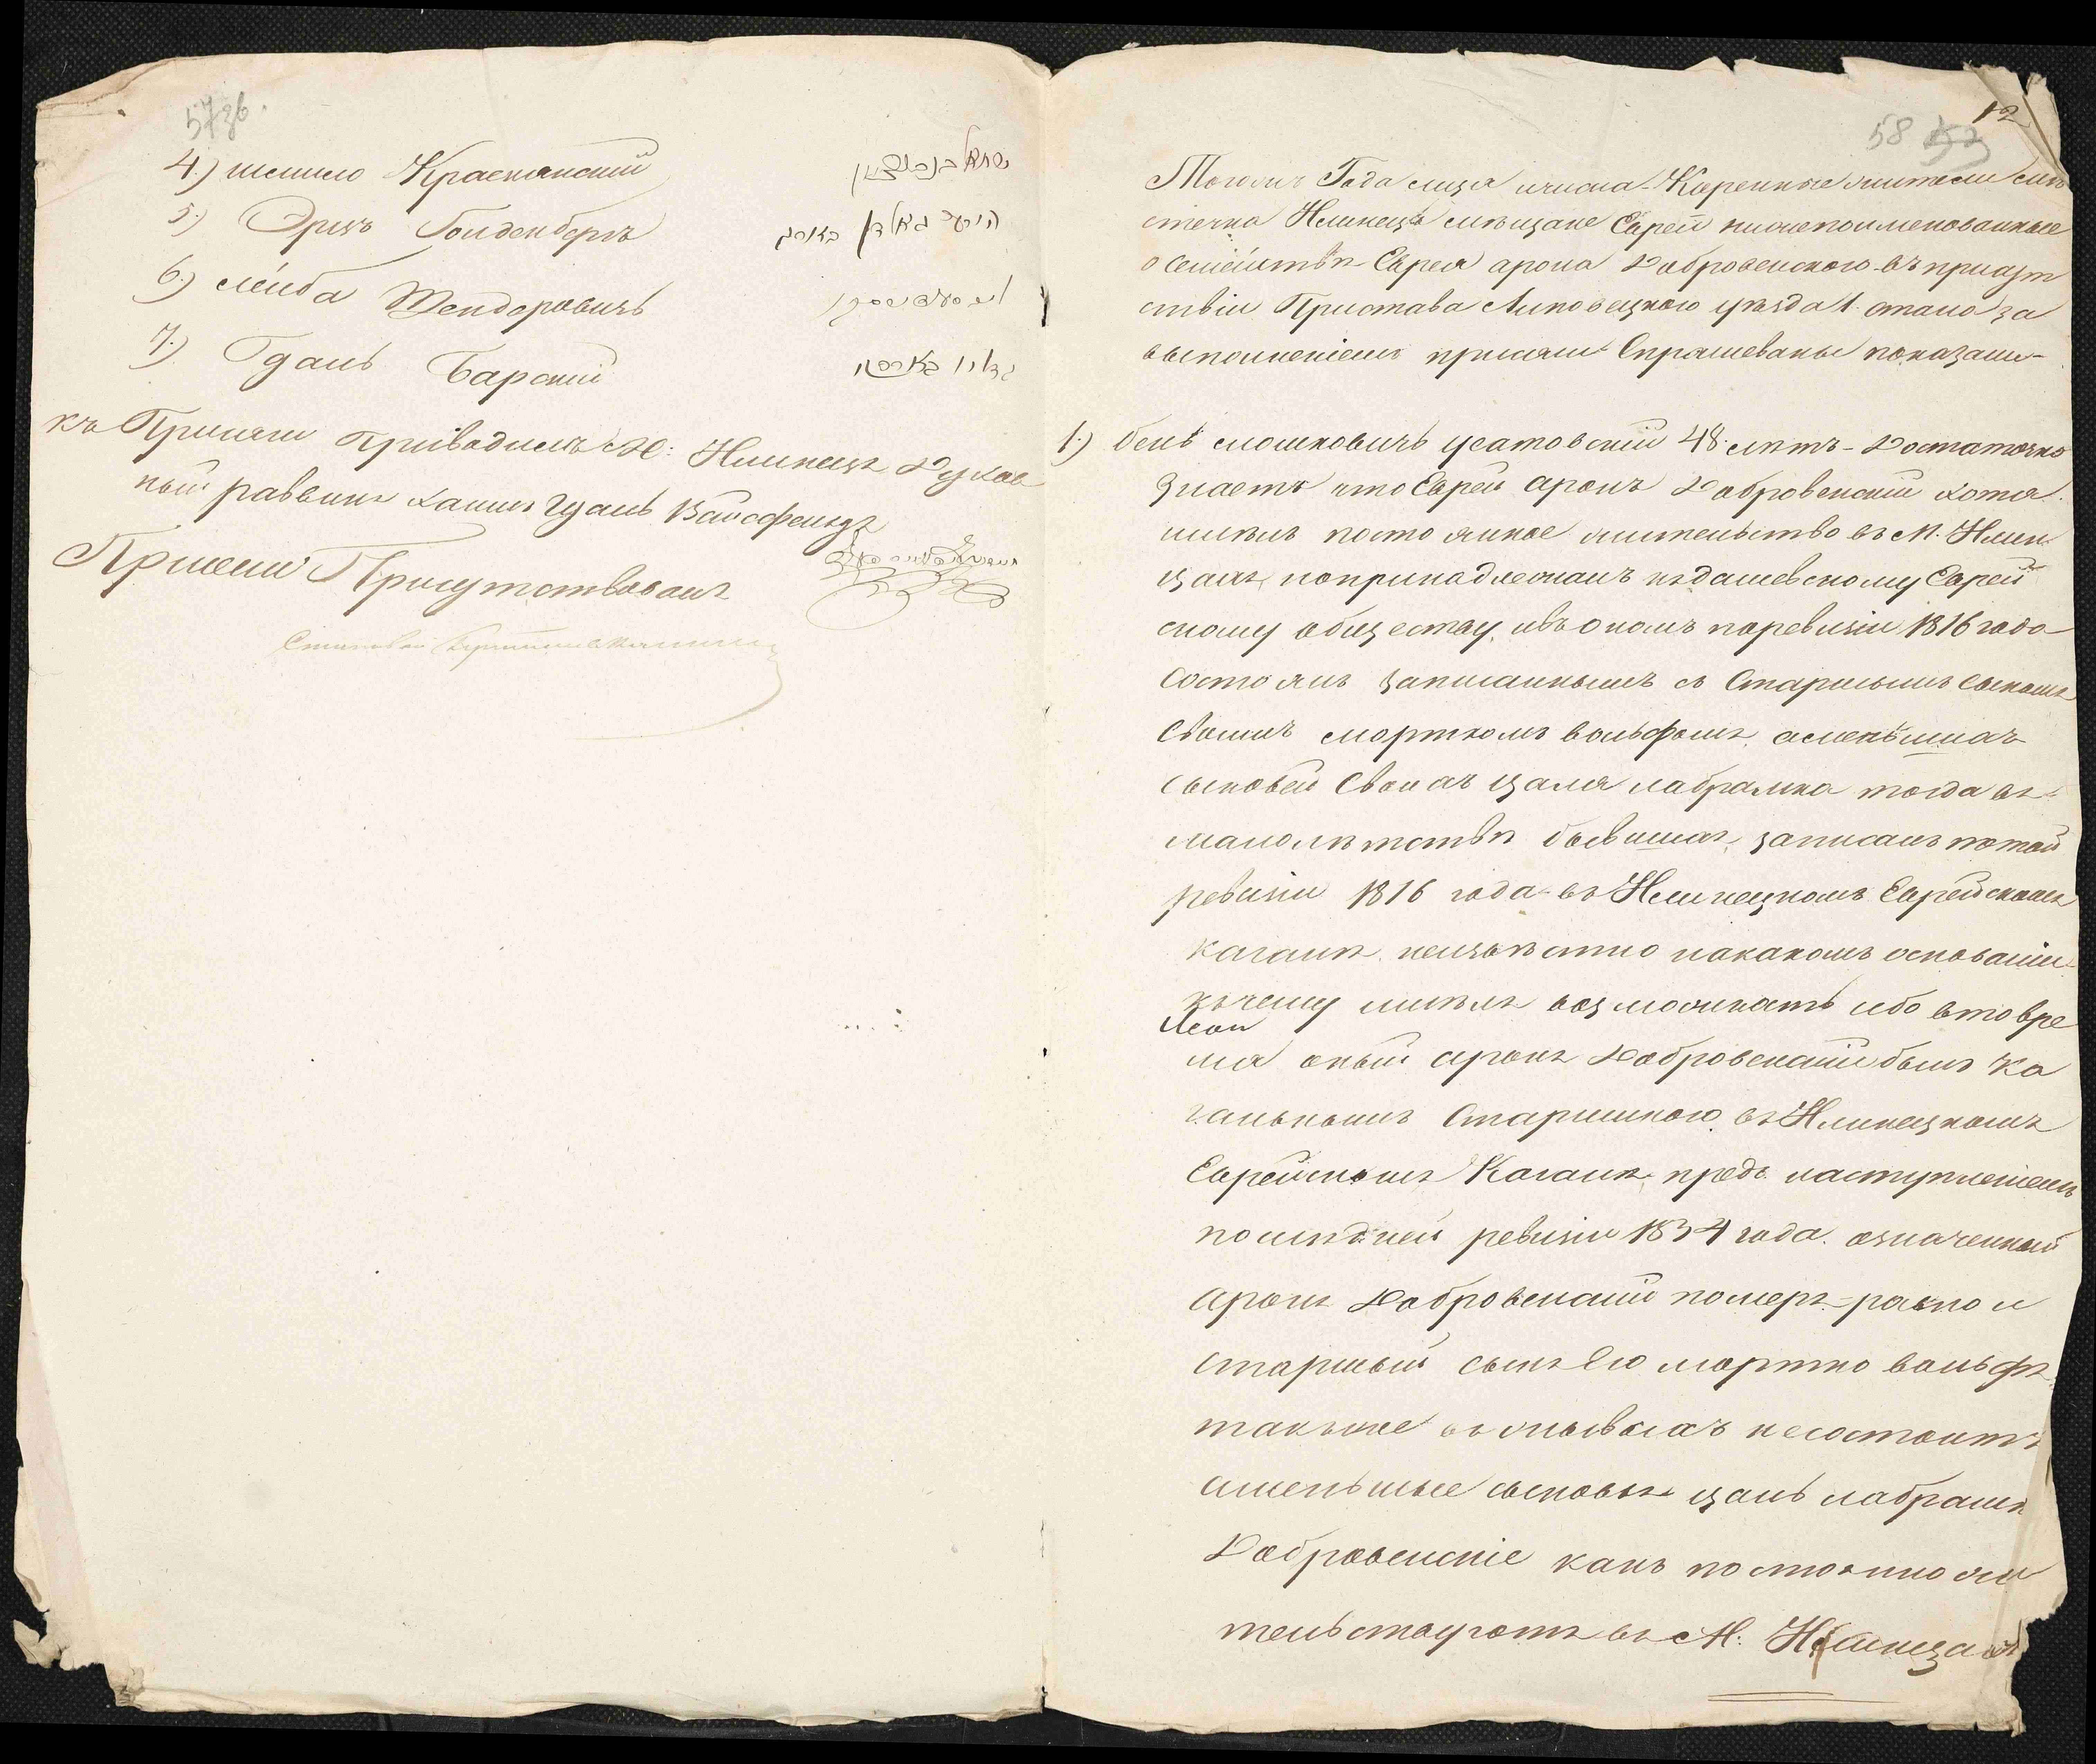 57 зв.
4.) шмило Краснянский
5.) Эрцъ Гольденбергъ
6.) лейба Тендеровичъ
7.) Гдаль Барский
къ Присяги Приводилъ М: Илинецъ Духов
ный раввинъ хаимъ гдаль Вайсфельдъ
Присеми Присутствовалъ
Становой
12
58
Тогожъ Года месяца и числа Коренные жители мѣ
стечка Илинецъ мѣщане Евреи нижепоименованные
о семействѣ Еврея арона Добровенского въ присут
ствіи Пристава Липовецкого уѣзда 1. стана за
выполненіемъ присяги Спрашеваны показали-
1.) бень мошковичъ усатовскій 48 лѣтъ - Достаточно
Знаетъ что Еврей аронъ Добровенскій хотя
имѣлъ постоянное жительство въ М. Илин
цахъ, но принадлежалъ къ дашевскому Еврей
скому обществу, ивъ ономъ по ревизіи 1816 года
Состоялъ записаннымъ съ Старшимъ сыномъ
Своимъ мортхомъ вольфомъ, а меньшихъ
сыновей Своихъ цаля иабрамка тогда въ
малолѣтствѣ бывшихъ, записалъ по той
ревизіи 1816 года въ Илинецкомъ Еврейскомъ
кагалѣ, неизвѣстно накакомъ основаніи
къчему имѣлъ возможность ибо въто вре
мя оный аронъ Добровенскій былъ Ка
гальнымъ Старшиною въ Илинецкомъ
Еврейскомъ Кагалѣ, предъ наступленіемъ
послѣдней ревизіи 1834 года. означенный
аронъ Добровенскій померъ равно и
старшый сынъ Его мортко вольфъ
такъже въ живыхъ несостоитъ
аменьшые сыновья цаль иабрамъ
Добровенскіе какъ постоянно жи
тельствуютъ въ М: Илинцахъ